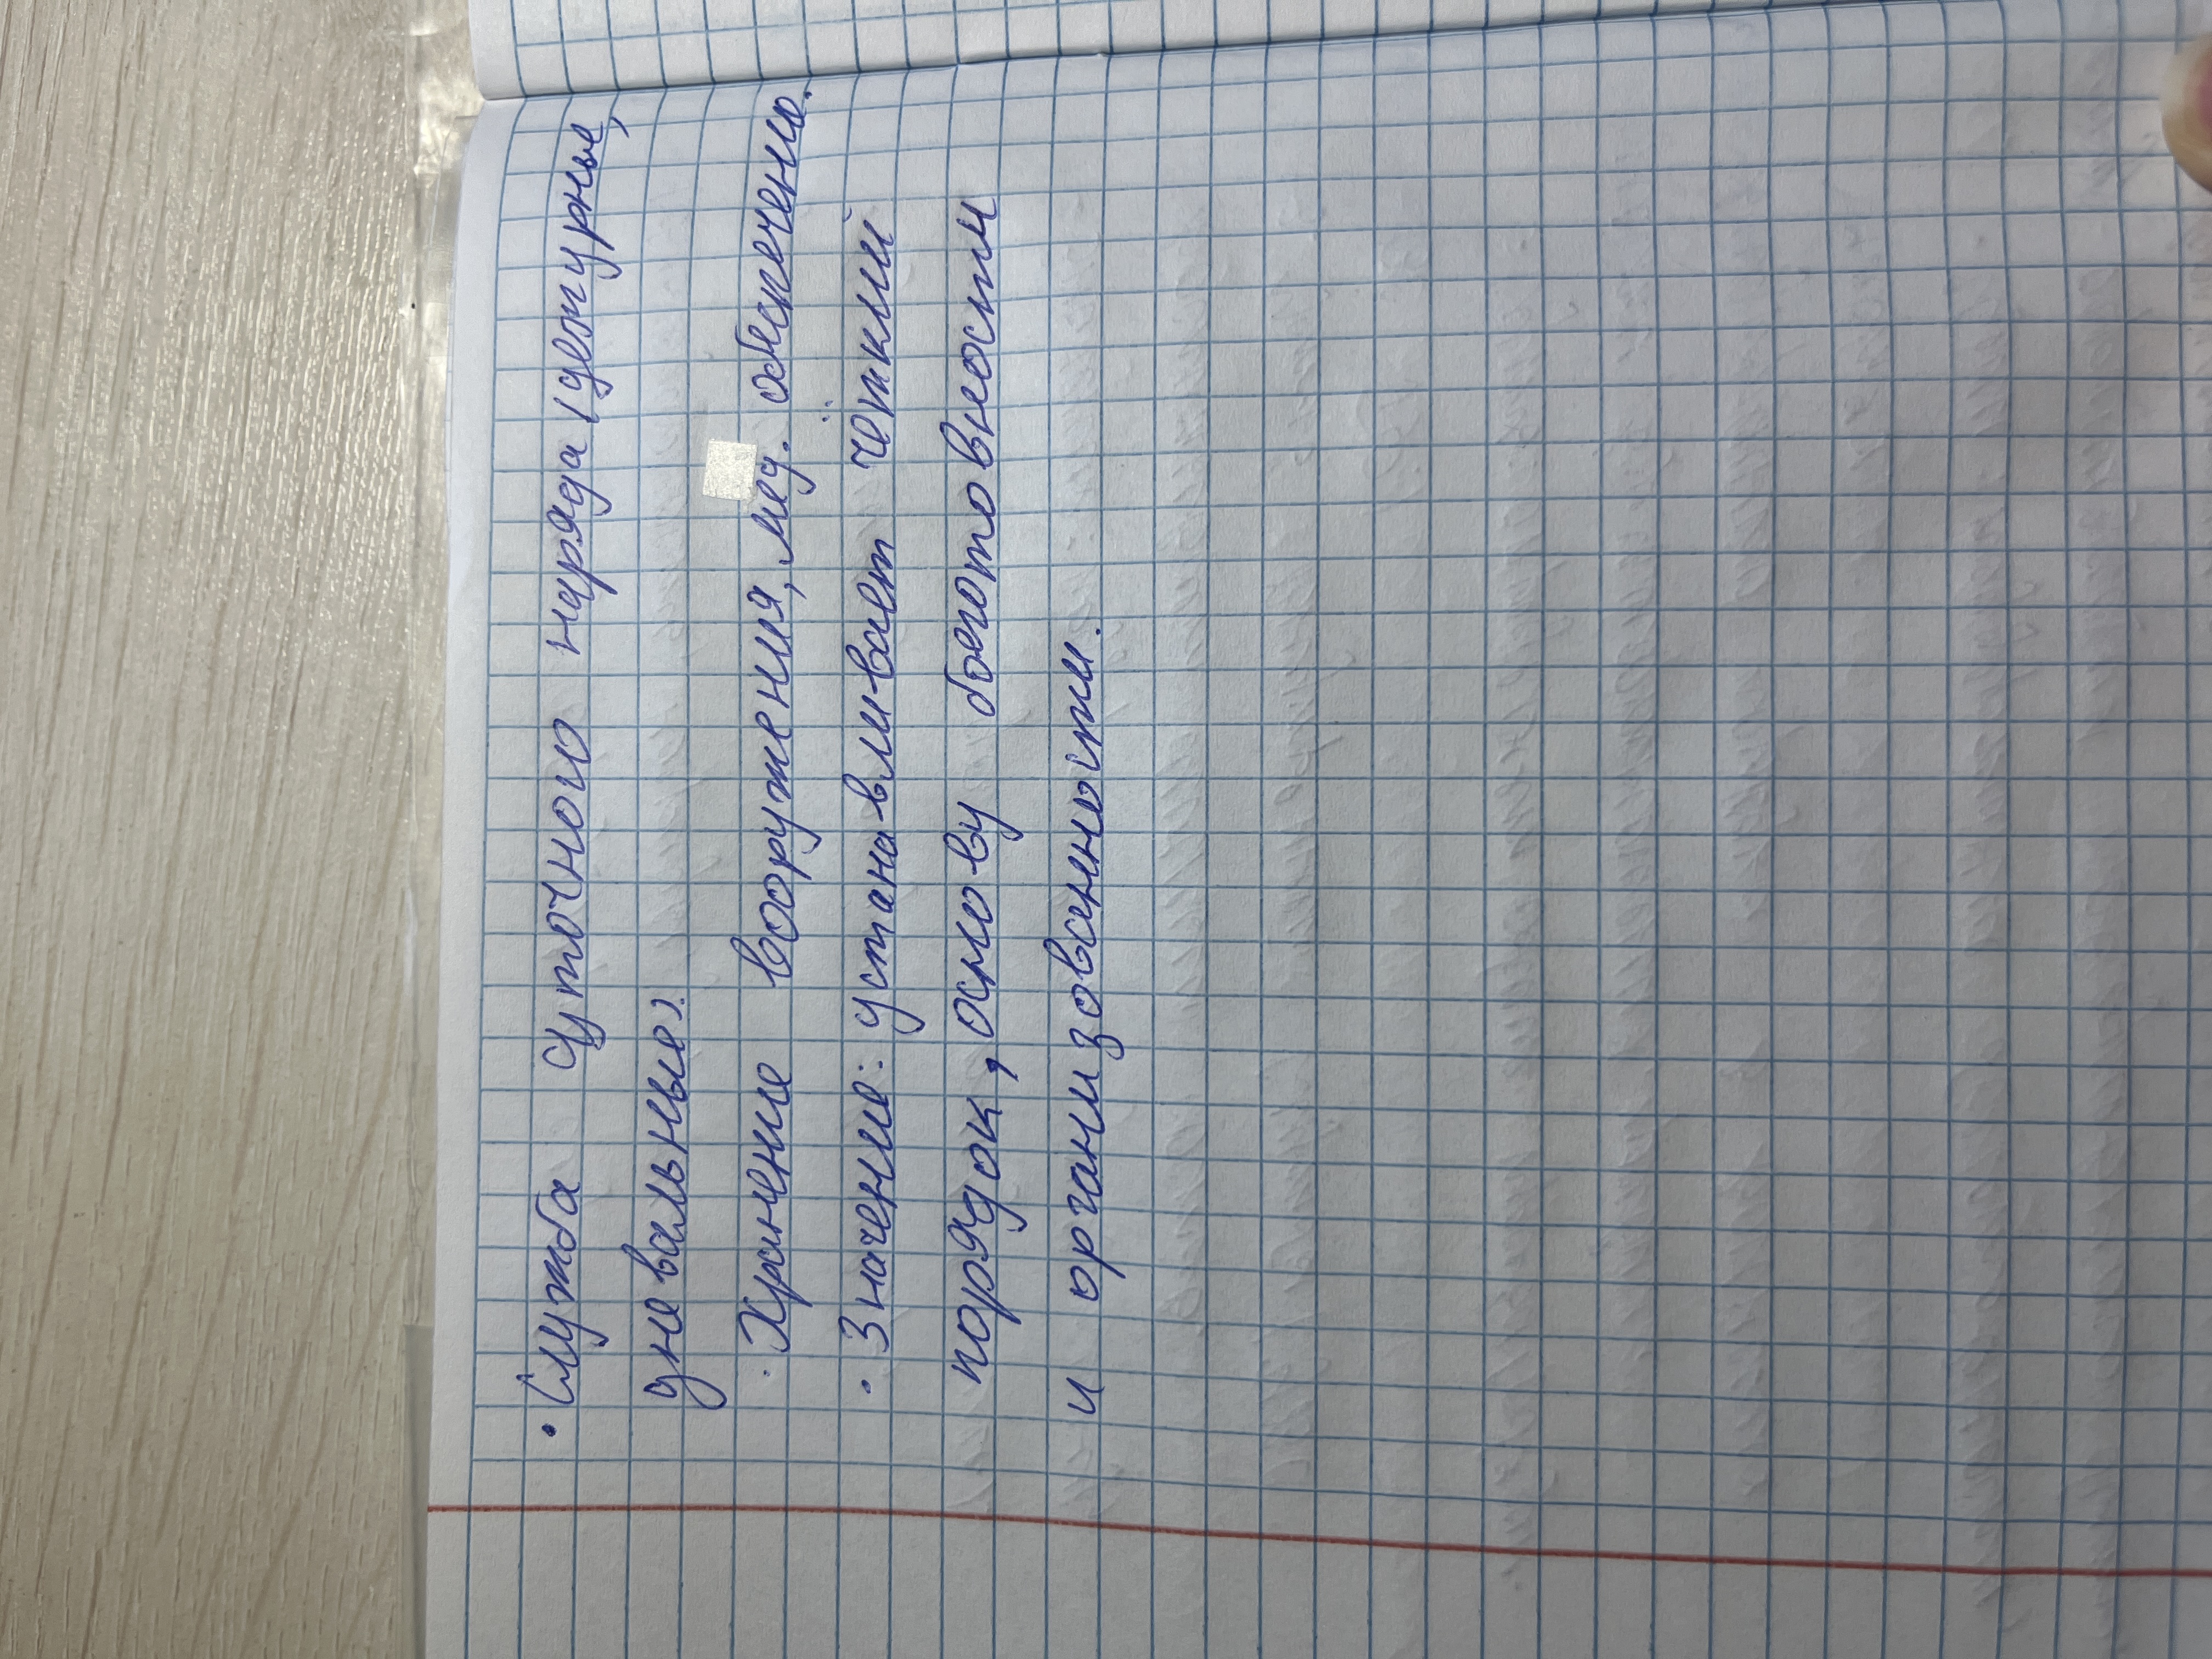 • Служба суточного наряда (дежурные,
дневальные).
· Хранение вооружения, мед. обеспечение.
• Значение: устанавливает чёткий
порядок, основу боеготовности
и организованности.